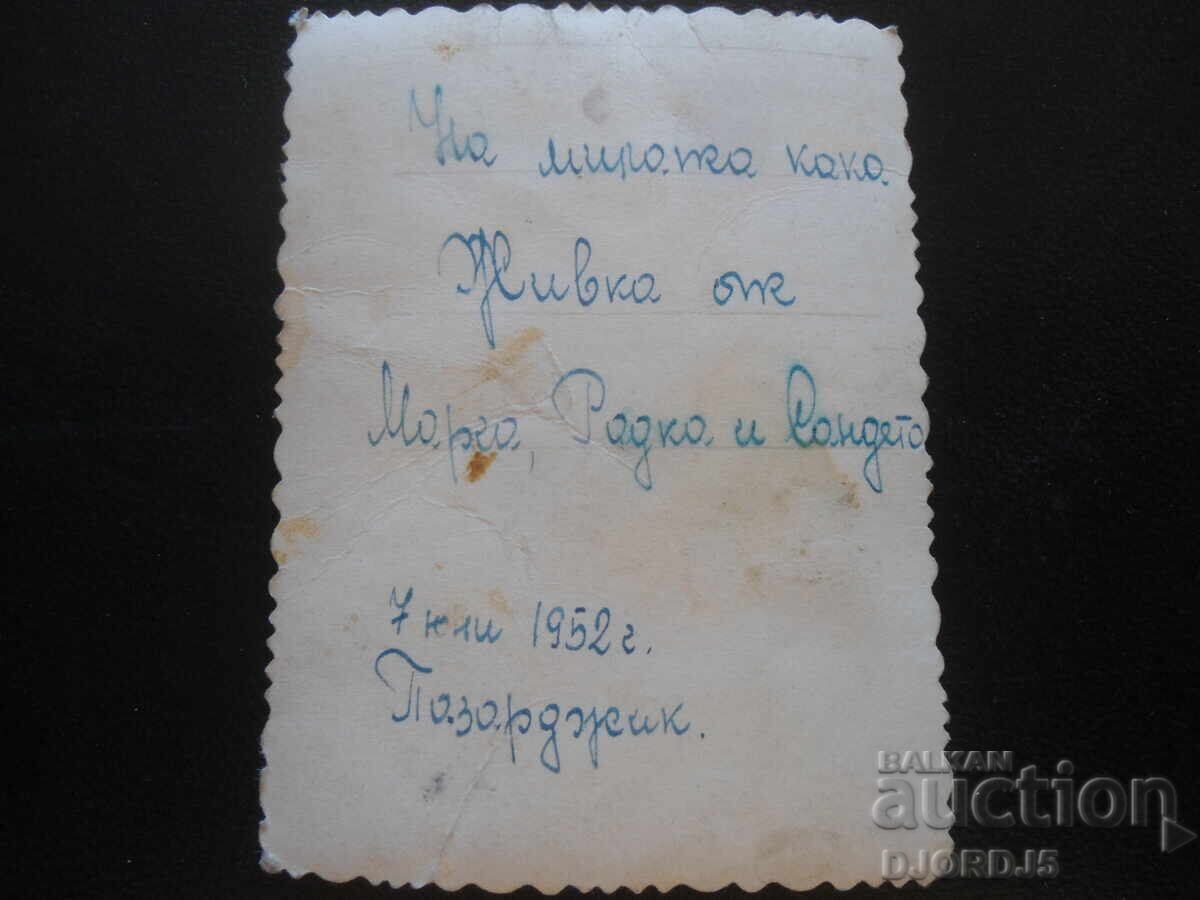 На милата кака
Живка от
Марга, Радка и Сандето
7 юли 1952 г.
Пазарджик.
BALKAN
auction
DJORDJ5